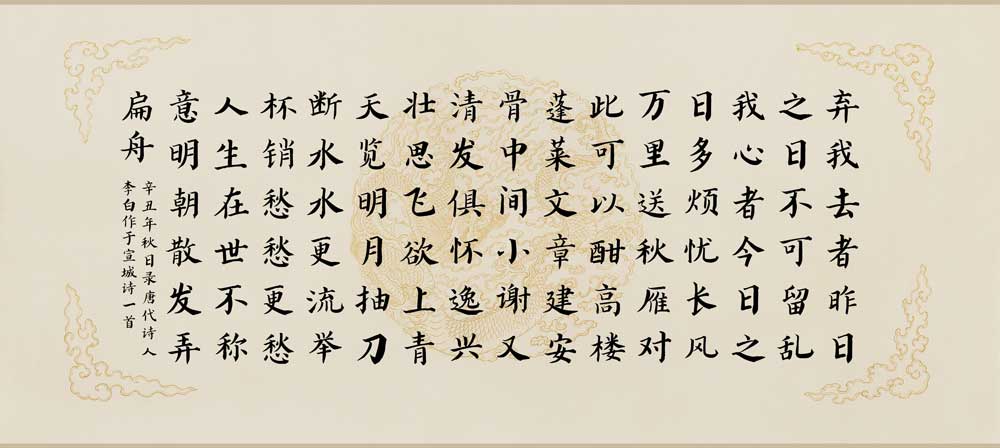 弃我去者昨日
之日不可留乱
我心者今日之
日多烦忧长风
万里送秋雁对
此可以酣高楼
蓬莱文章建安
骨中间小谢又
清发俱怀逸兴
壮思飞欲上青
天览明月抽刀
断水水更流举
杯销愁愁更愁
人生在世不称
意明朝散发弄
扁舟
辛丑年秋日录唐代诗人
李白作于宣城诗一首